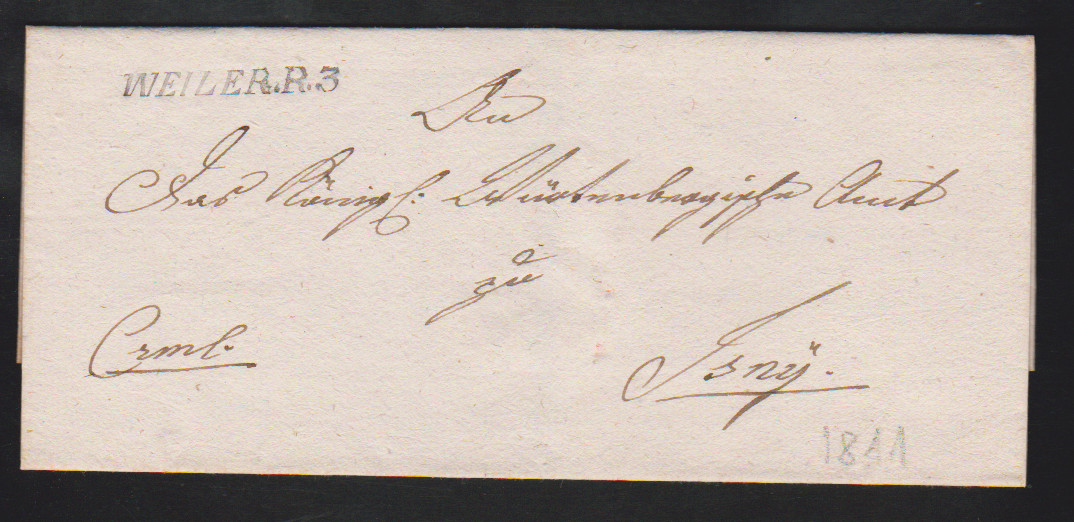 WEILER.R.3
An
Das Königl: Würtenbergische Amt
zu
Crml.
Isnÿ.
1841